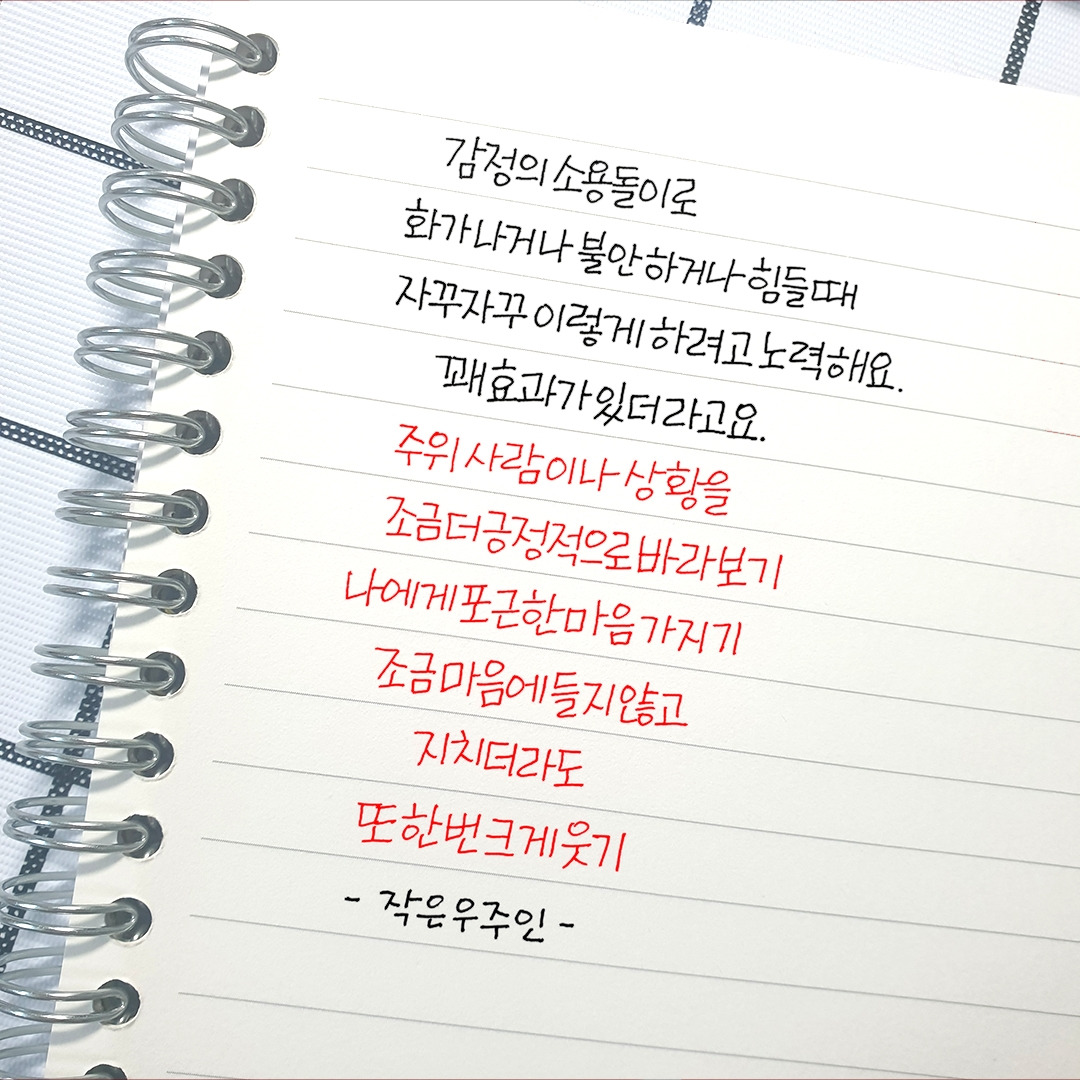 감정의 소용돌이로
화가 나거나 불안하거나 힘들 때
자꾸자꾸 이렇게 하려고 노력해요.
꽤 효과가 있더라고요.
주위 사람이나 상황을
조금 더 긍정적으로 바라보기
나에게 포근한 마음 가지기
조금 마음에 들지 않고
지치더라도
또 한번 크게 웃기
- 작은우주인 -